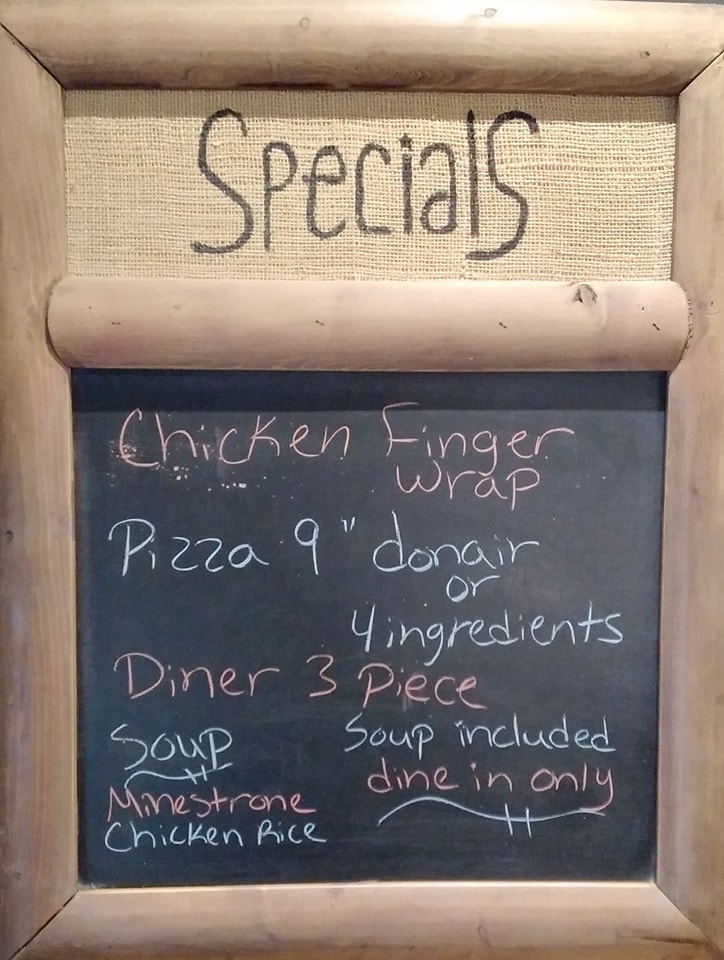 Specials
Chicken Finger
Wrap
Pizza 9" donair
or
4 ingredients
Diner 3 Piece
Soup
Minestrone
Chicken Rice
Soup included
dine in only